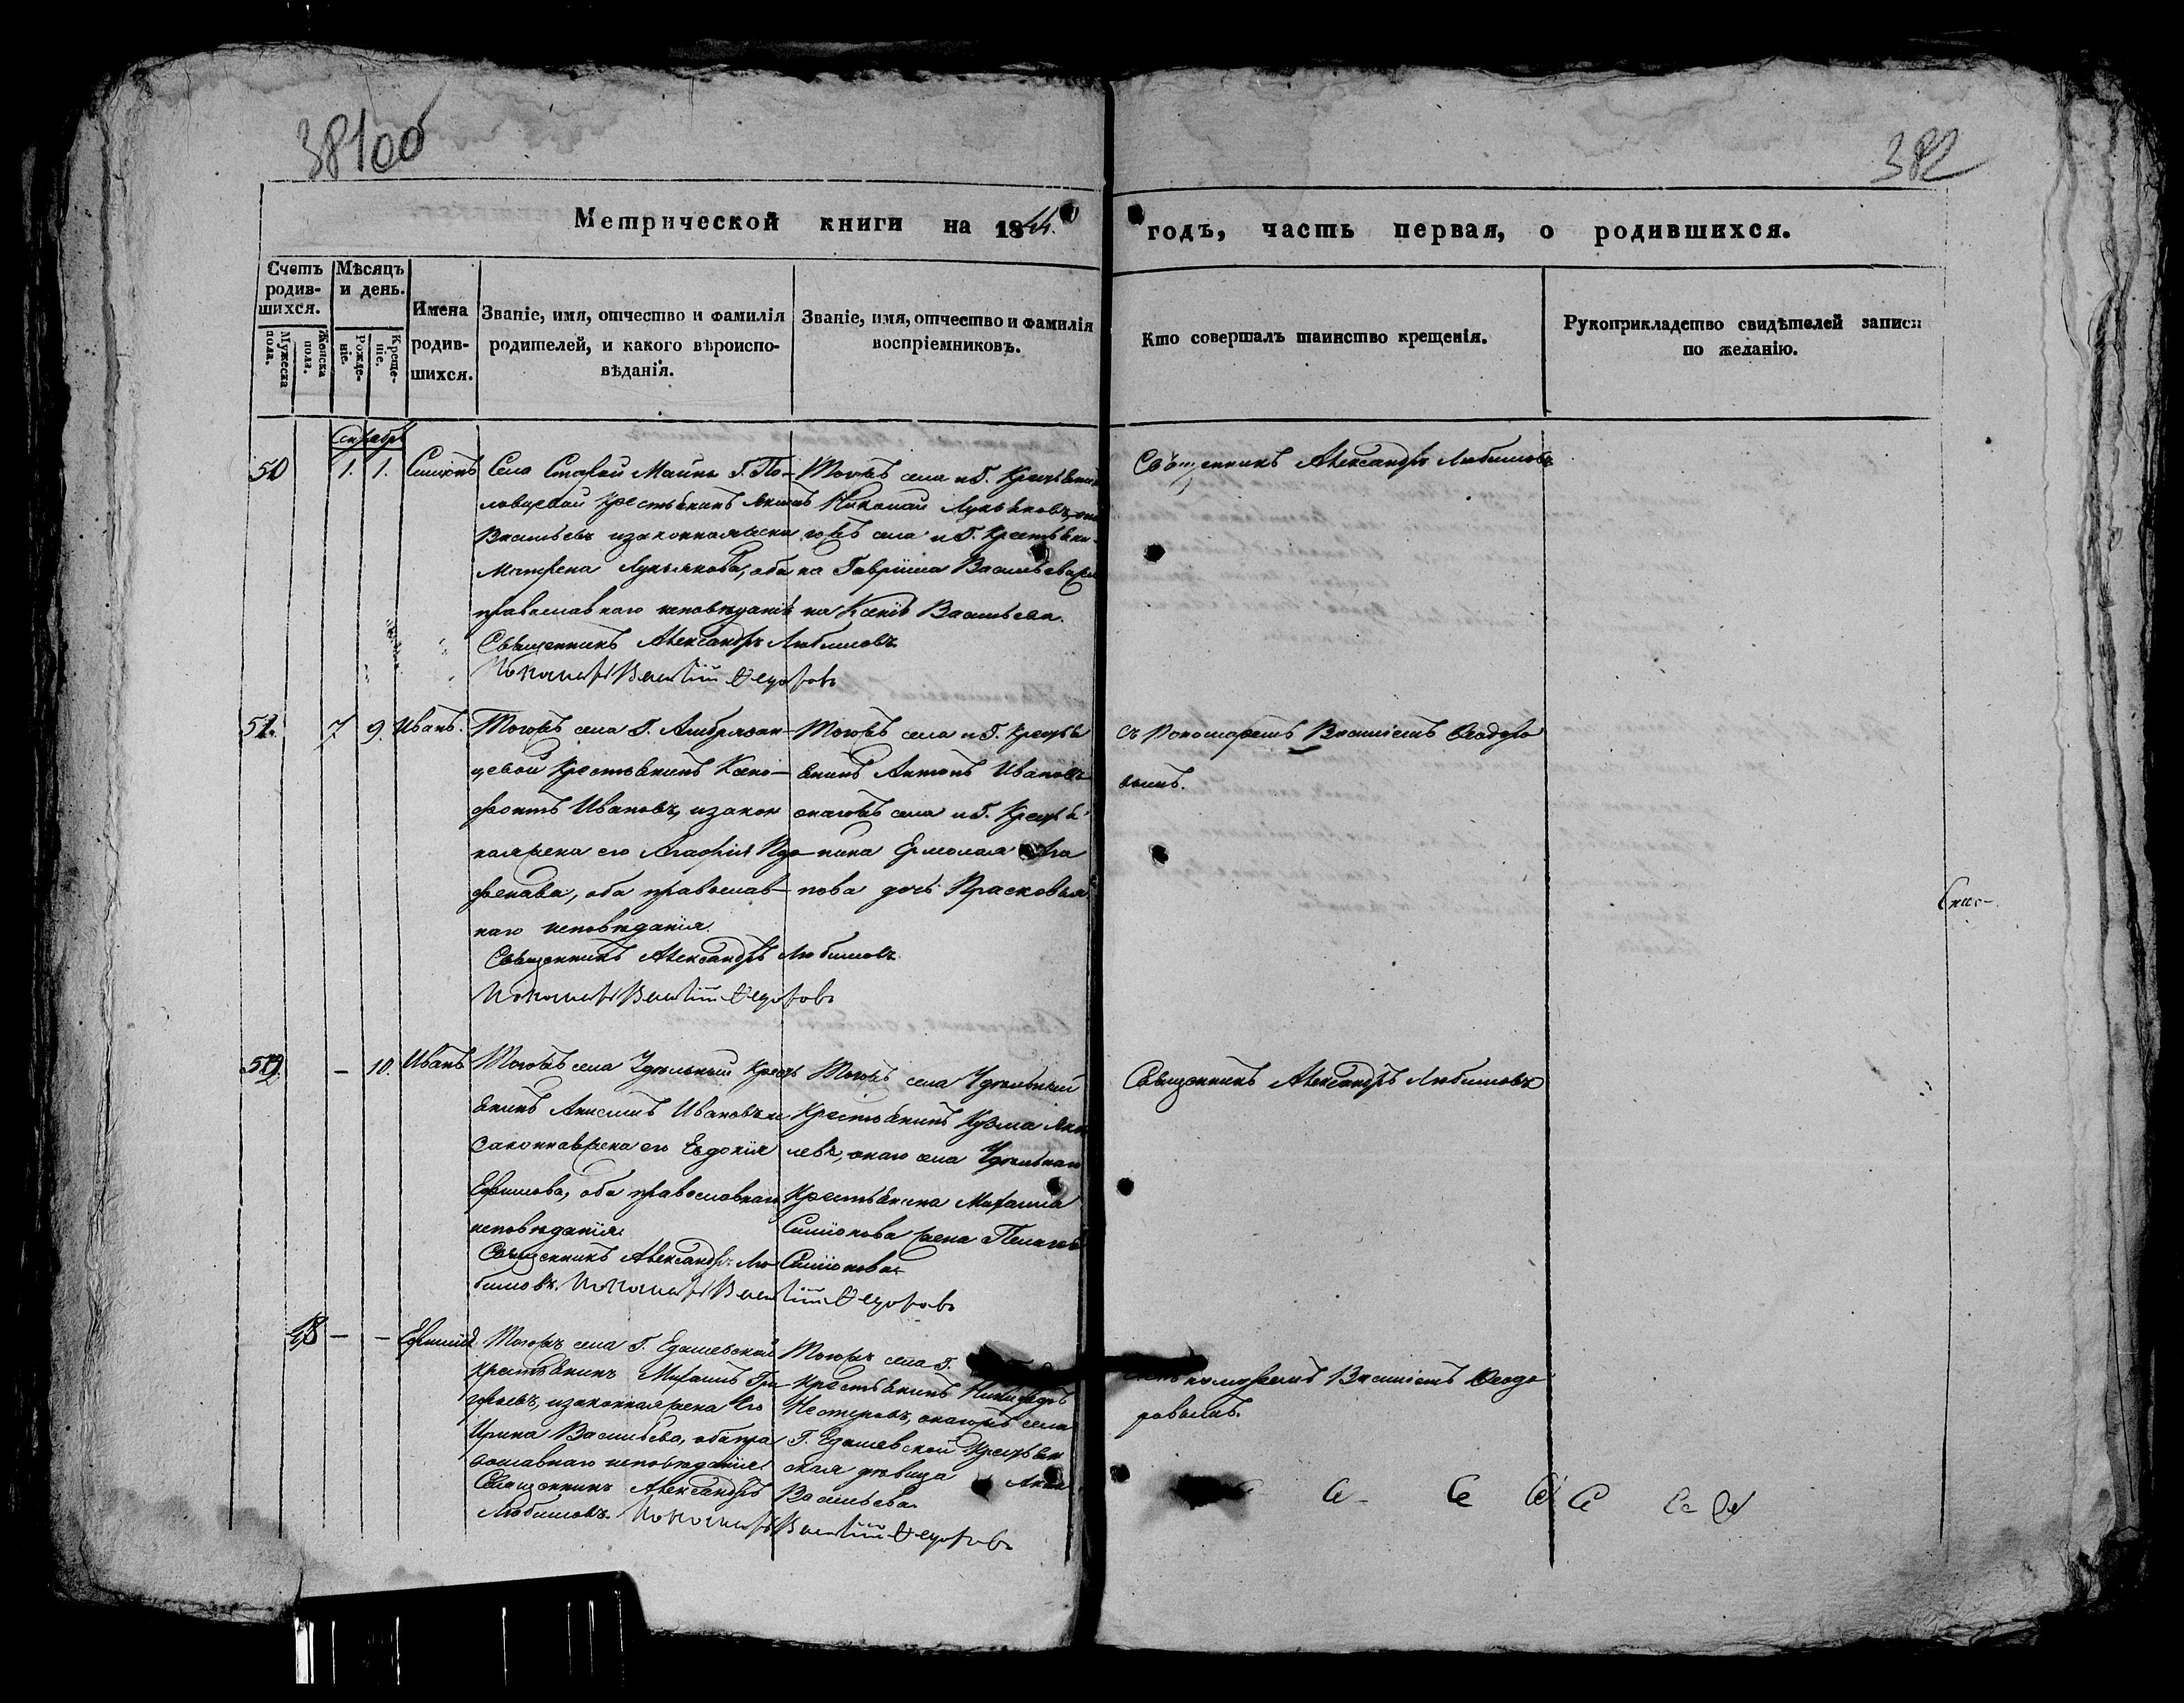 382
Метрической книги на 1844.
годъ, часть первая, о родившихся.
Счетъ родив-шихся.
Мужеска пола.
Женска пола.
Мѣсяцъ и день.
Рожде-ніе.
Креще-ніе.
Имена родив-шихся.
Званіе, имя, отчество и фамилія родителей, и какого вѣроиспо-вѣданія.
Званіе, имя, отчество и фамилія воспріемниковъ.
Кто совершалъ таинство крещенія.
Рукоприкладство свидѣтелей записи по желанію.
50
1. 1.
Симіонъ
Села Старой Майны Г. По-
ловцевой крестьянинъ
Васильевъ и законная жена
Матрена Лукьянова, оба
православнаго исповѣданія
Священникъ Александръ Любимовъ
Пономарь Василій Ѳедоровъ
Тогожъ села и Г. Крестьянинъ
Николай Лукьяновъ,
гожъ села и Г. Крестьяни-
на Гавріила Васильева
на Ксенія Васильева.
Священникъ Александръ Любимовъ
51.
7 9.
Иванъ.
Тогожъ села Г.
цевой Крестьянинъ Ксено-
фонтъ Ивановъ, и закон
ная жена его Агафія Пар-
фенова, оба православ-
наго исповѣданія.
Священникъ Александръ Любимовъ
Пономарь Василій Ѳедоровъ
Тогожъ села и Г. Кресть
янинъ Антонъ Ивановъ
онагожъ села и Г. Кресть
янина Ермолая
пова дочь Прасковья
съ Пономаремъ Василіемъ Ѳеодоро
вымъ.
52
- 10.
Иванъ
Тогожъ села Удѣльный Крест
янинъ Анисимъ Ивановъ и
законная жена его Евдокія
Ефимова, оба православнаго
исповѣданія
Священникъ Александръ Лю-
бимовъ. Пономарь Василій Ѳедоровъ
Тогожъ села Удѣльный
Крестьянинъ Кузма Яков
левъ, онаго села Удѣльнаго
Крестьянина Михаила
Симіонова жена Пелагея
Симіонова
Священникъ Александръ Любимовъ
48
- -
Ефимія
Тогожъ села Г. Едашевской
Крестьянинъ Михаилъ Гри-
горьевъ, и законная жена его
Ирина Васильева, оба пра
вославнаго исповѣданія
Священникъ Александръ
Любимовъ. Пономарь Василій Ѳедоровъ
Тогожъ села Г.
Крестьянинъ Никифоръ
Нестеровъ, онагожъ села
Г. Едашевской Крестьян
ская дѣвица Анна
Васильева
Василіемъ Ѳеодо
ровымъ.